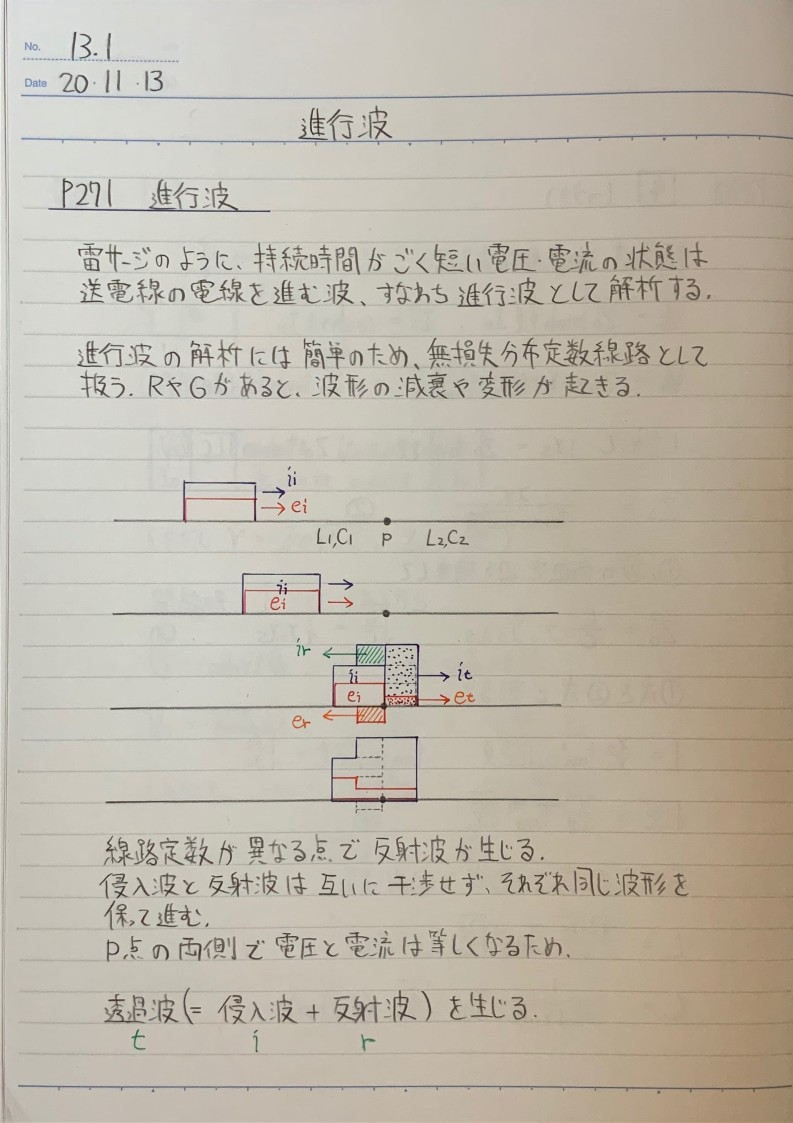 No. 13.1
Date 20・11・13
進行波
P271 進行波
雷サージのように、持続時間がごく短い電圧・電流の状態は
送電線の電線を進む波、すなわち進行波として解析する.
進行波の解析には簡単のため、無損失分布定数線路として
扱う. RやGがあると、波形の減衰や変形が起きる.
ii
ei
L1,C1 P L2,C2
ii
ei
ir
ii
it
ei
et
er
線路定数が異なる点で反射波が生じる.
侵入波と反射波は互いに干渉せず、それぞれ同じ波形を
保って進む.
P点の両側で電圧と電流は等しくなるため.
透過波(= 侵入波 + 反射波) を生じる.
t i r